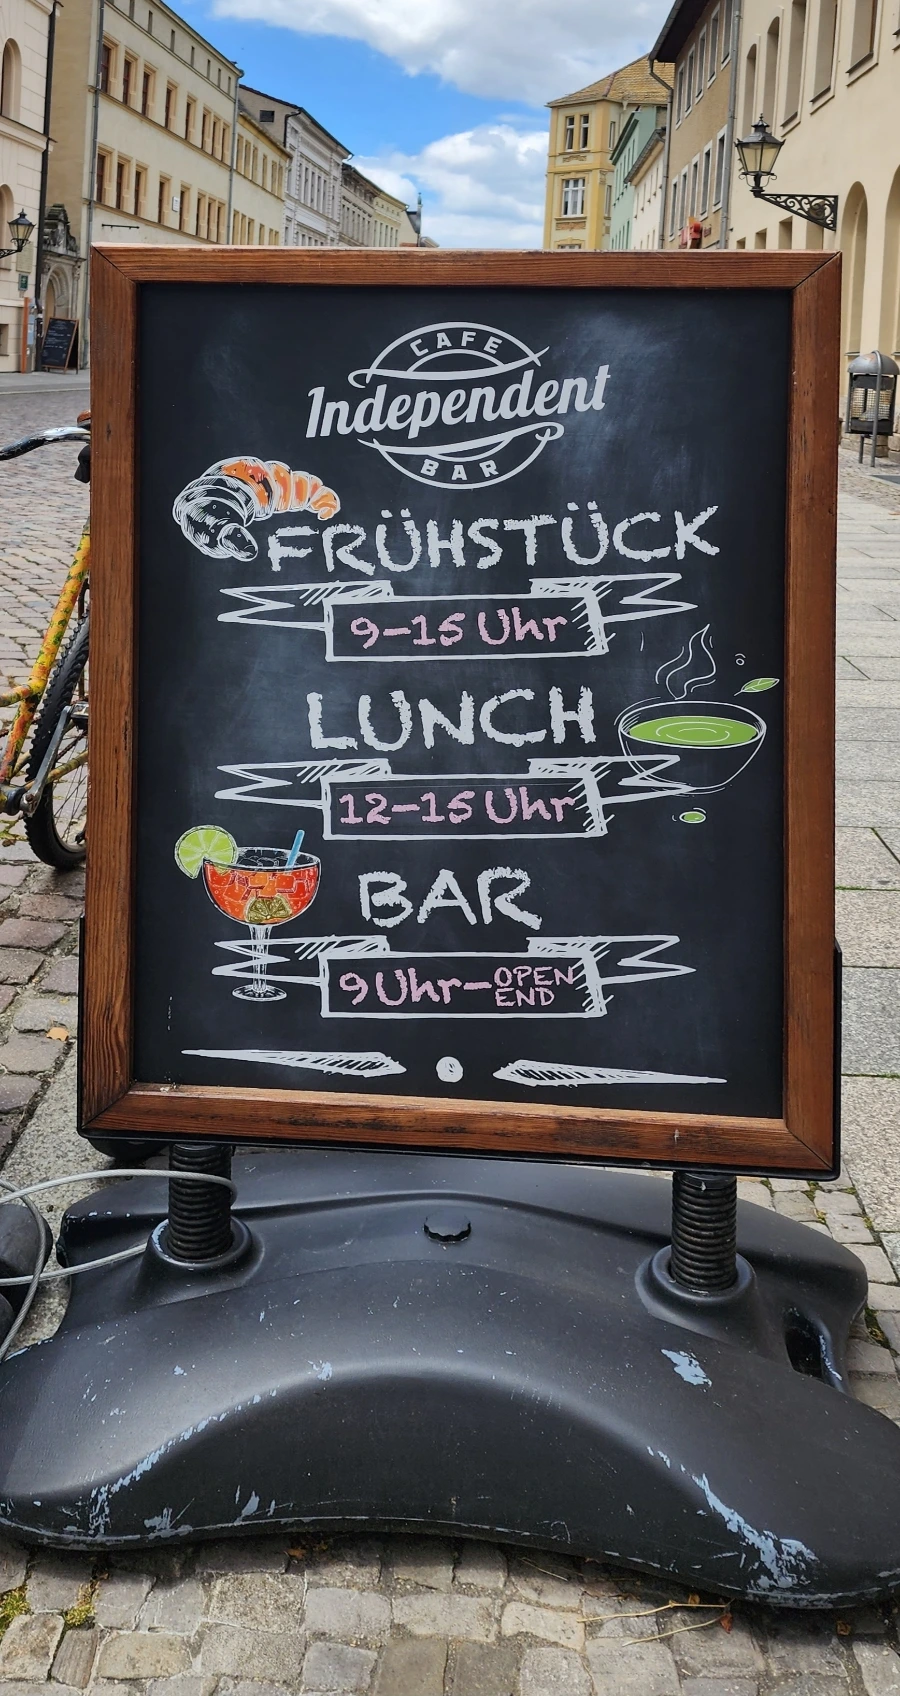 CAFE
Independent
BAR
FRÜHSTÜCK
9–15 Uhr
LUNCH
12–15 Uhr
BAR
9 Uhr– OPEN
END